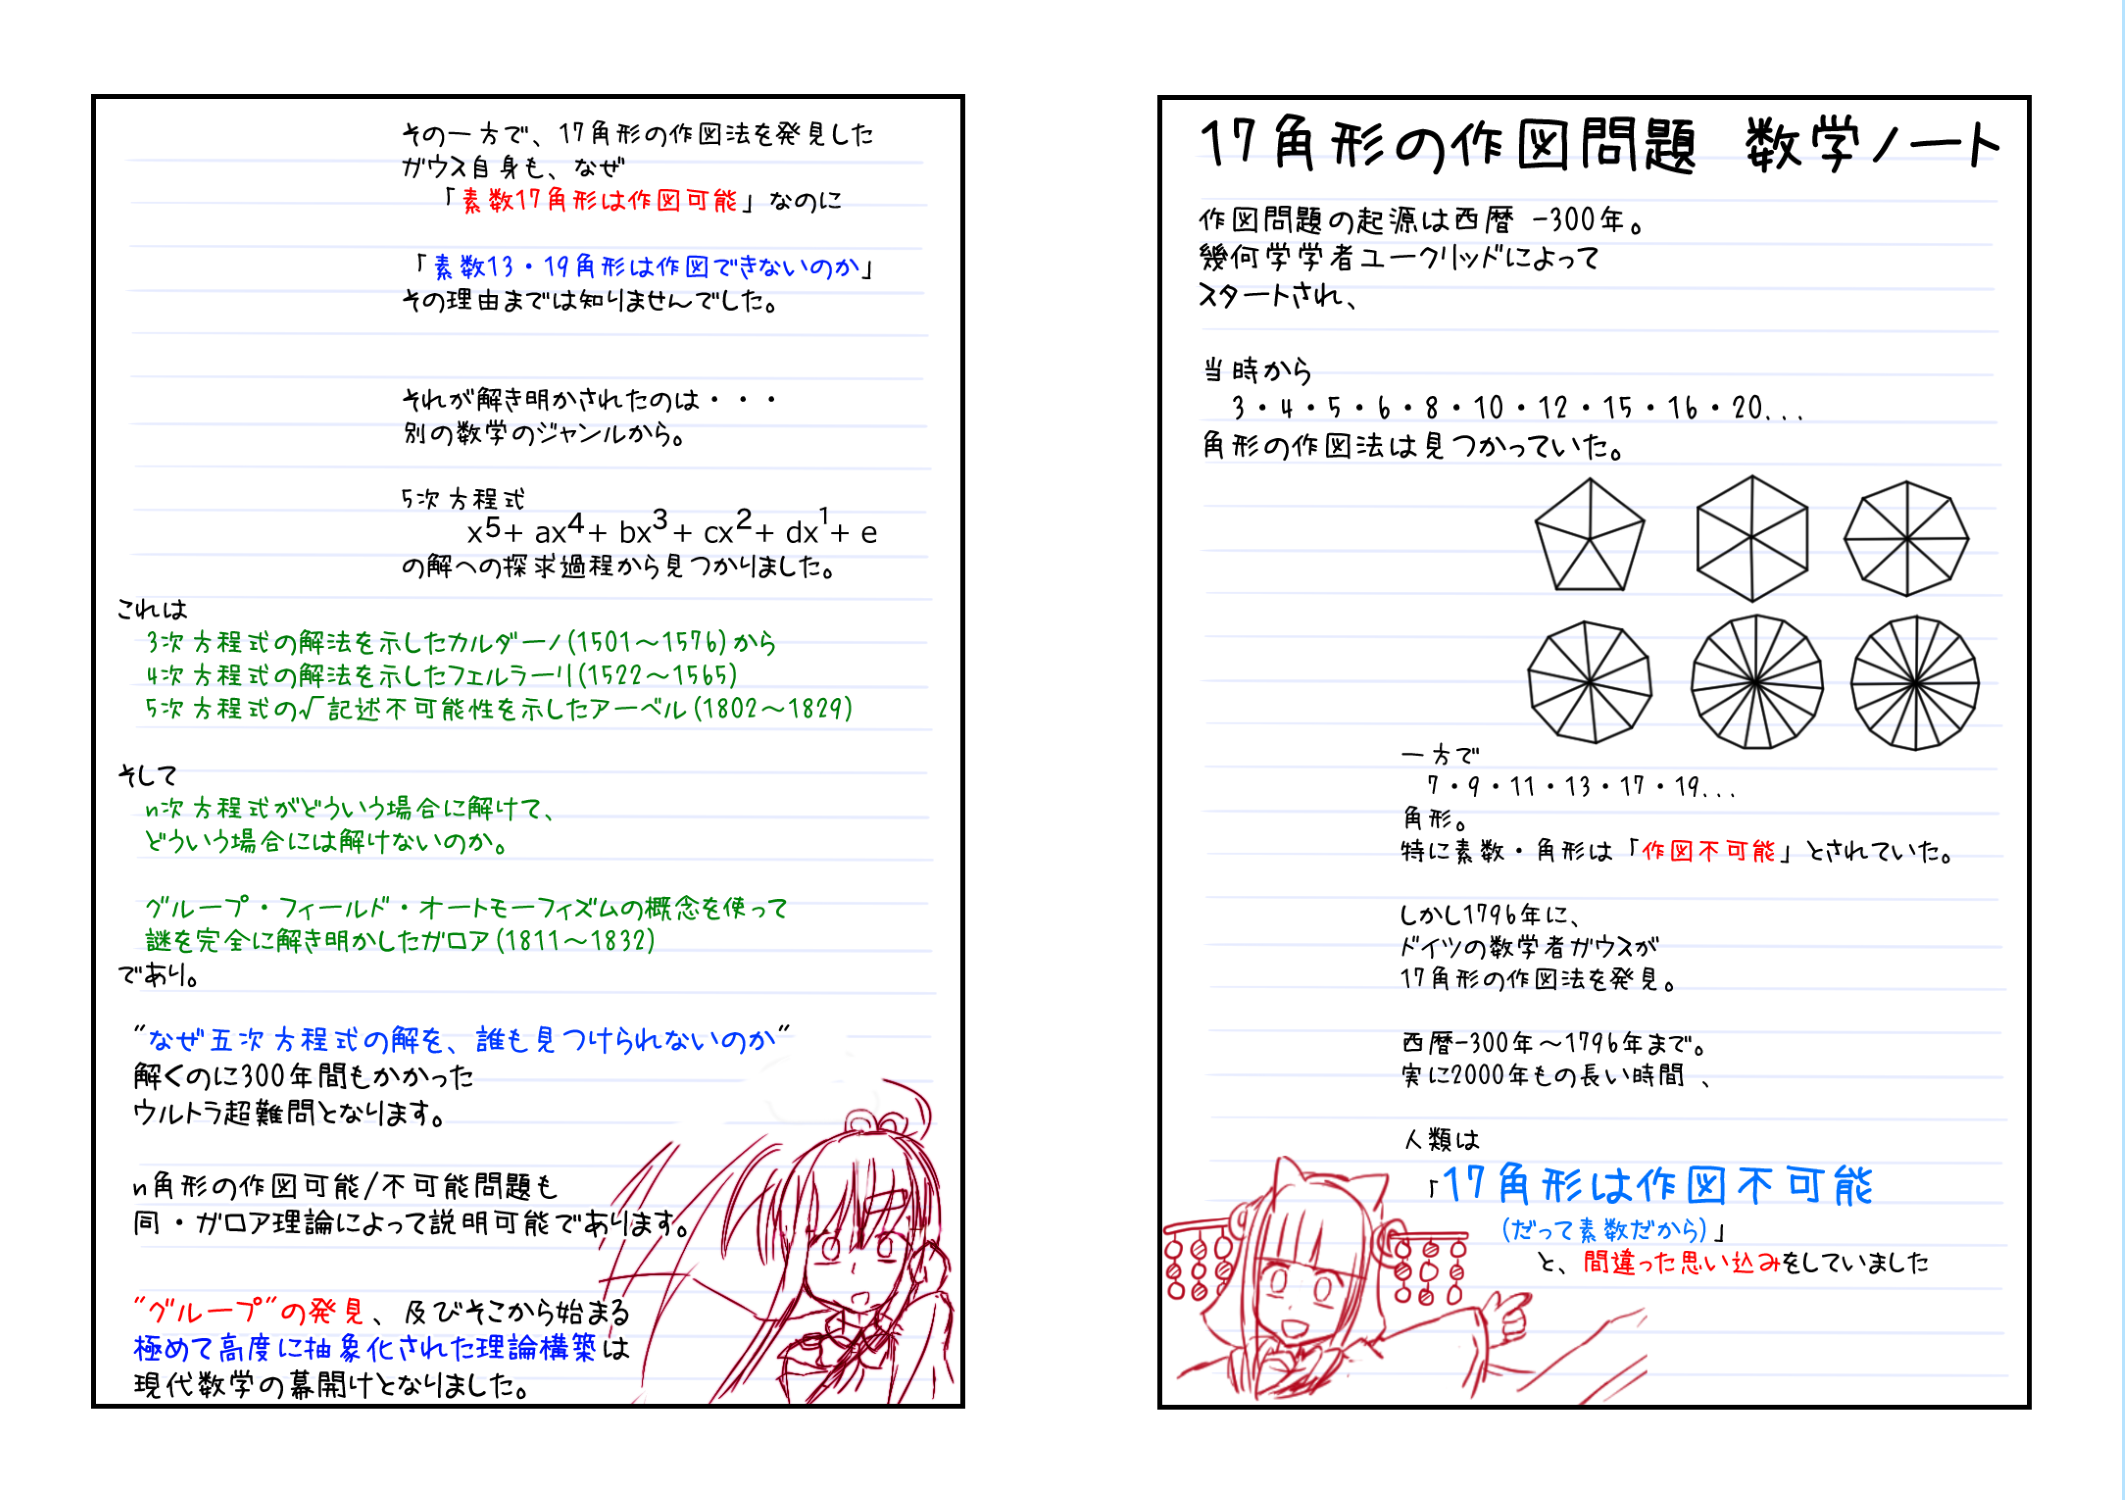 17角形の作図問題 数学ノート
作図問題の起源は西暦 -300年。
幾何学学者ユークリッドによって
スタートされ、
当時から
3・4・5・6・8・10・12・15・16・20...
角形の作図法は見つかっていた。
一方で
7・9・11・13・17・19...
角形。
特に素数・角形は「作図不可能」とされていた。
しかし1796年に、
ドイツの数学者ガウスが
17角形の作図法を発見。
西暦-300年～1796年まで。
実に2000年もの長い時間、
人類は
「17角形は作図不可能
(だって素数だから)」
と、間違った思い込みをしていました
その一方で、17角形の作図法を発見した
ガウス自身も、なぜ
「素数17角形は作図可能」なのに
「素数13・19角形は作図できないのか」
その理由までは知りませんでした。
それが解き明かされたのは・・・
別の数学のジャンルから。
5次方程式
x⁵+ ax⁴+ bx³+ cx²+ dx¹+ e
の解への探求過程から見つかりました。
これは
3次方程式の解法を示したカルダーノ(1501～1576)から
4次方程式の解法を示したフェルラーリ(1522～1565)
5次方程式の√記述不可能性を示したアーベル(1802～1829)
そして
n次方程式がどういう場合に解けて、
どういう場合には解けないのか。
グループ・フィールド・オートモーフィズムの概念を使って
謎を完全に解き明かしたガロア(1811～1832)
であり。
"なぜ五次方程式の解を、誰も見つけられないのか"
解くのに300年間もかかった
ウルトラ超難問となります。
n角形の作図可能/不可能問題も
同・ガロア理論によって説明可能であります。
"グループ"の発見、及びそこから始まる
極めて高度に抽象化された理論構築は
現代数学の幕開けとなりました。